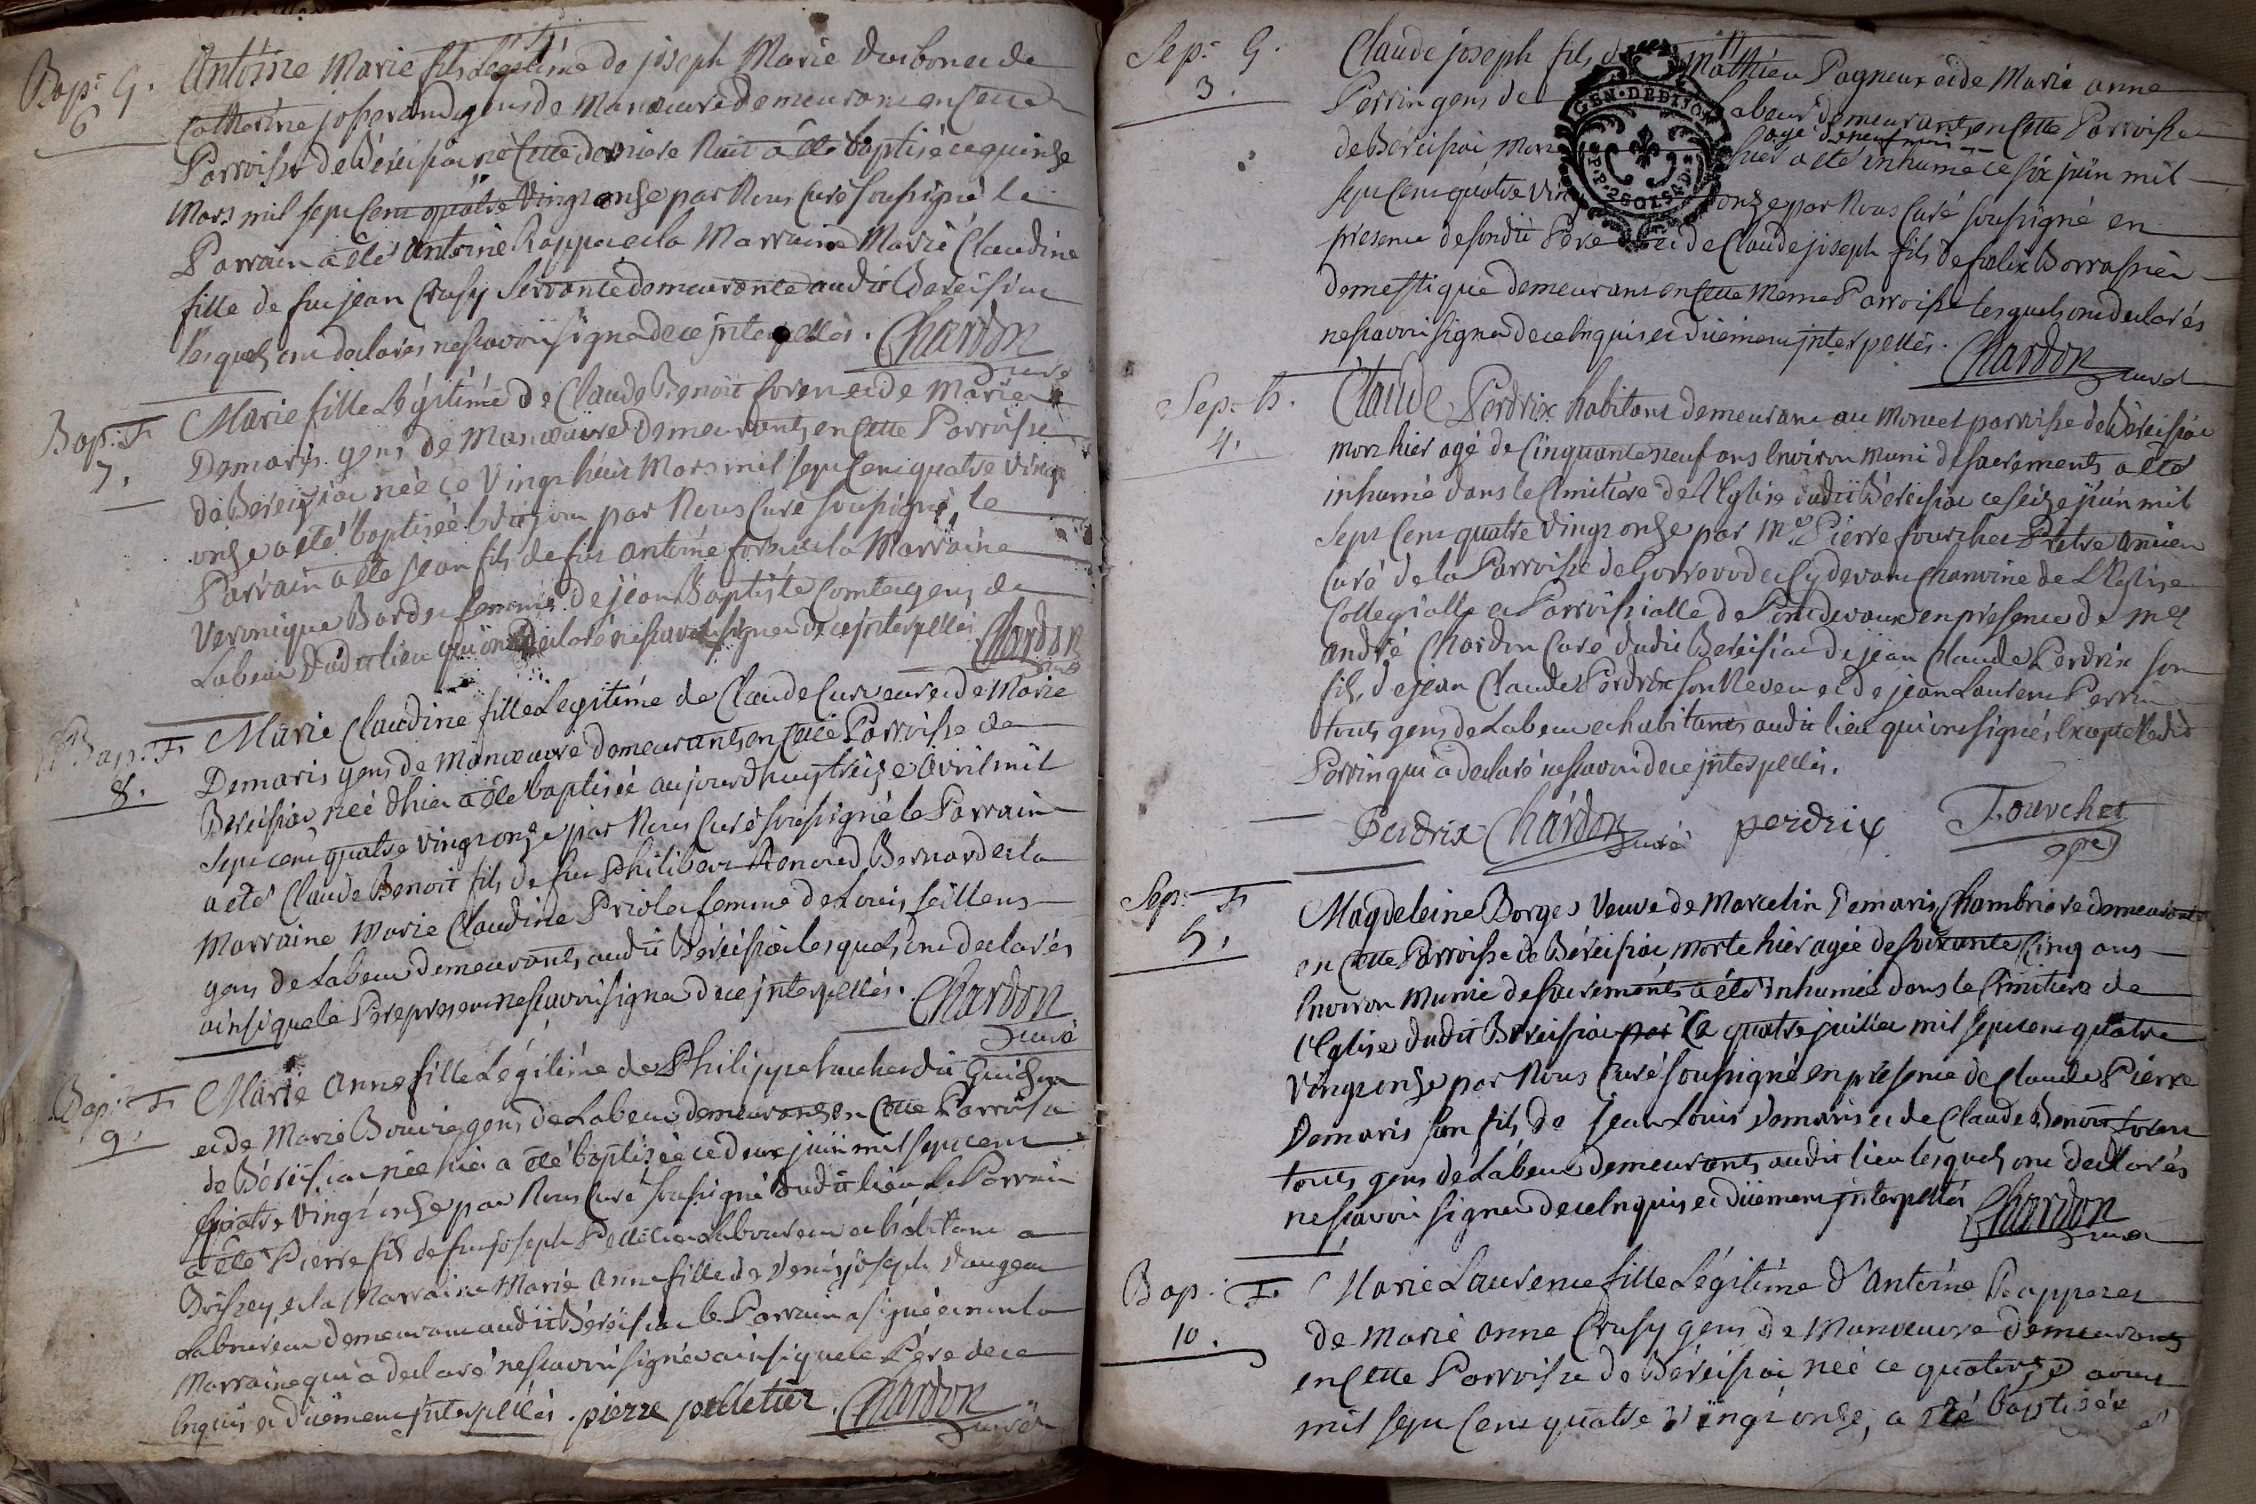 Bap: G.
6
Antoine Marie fils Légitime de joseph Marie Darbon et de
Catherine josserand gens de Manoeuvre demeurant en Cette
Parroisse de Béreisiat né Cette derniere Nuit a été baptisé ce quinze
Mars mil sept Cent quatre Vingt onze par Nous Curé soussigné le
Parrain a été Antoine Rappe et la Marraine Marie Claudine
fille de feu jean Crusy Servante demeurante audit Béreisiat
lesquels ont declarés ne sçavoir signer de ce jnterpellés. Chardon
curé
Bap: F.
7.
Marie fille Légitime de Claude Benoit foren et de Marie
Demaris gens de Manoeuvre demeurants en Cette Parroisse
de Béreisiat née ce Vingt huit Mars mil sept Cent quatre Vingt
onze a été baptisée led. jour par Nous Curé soussigné, le
Parrain a été jean fils de feu antoine foren et la Marraine
Veronique Bordet femme de jean Baptiste Comtet gens de
Labeur dudit lieu qui ont declaré ne sçavoir signer de ce jnterpellés Chardon
curé
Bap: F.
8.
Marie Claudine fille Legitime de Claude Curveur et de Marie
Demaris gens de Manoeuvre demeurants en Cette Parroisse de
Béreisiat née d'hier a été baptisée aujourdhuy treize Avril mil
sept cent quatre vingt onze par Nous Curé soussigné le Parrain
a été Claude Benoit fils de feu Philibert Renoud Bernard et la
Marraine Marie Claudine Priolet femme de Louis feillens
gens de Labeur demeurants audit Béreisiat lesquels ont declarés
ainsi que le Pere present ne sçavoir signer de ce jnterpellés. Chardon
curé
Bap: F.
9.
Marie Anne fille Légitime de Philippe huchet dit Guichon
et de Marie Bouvie gens de Labeur demeurants en Cette Parroisse
de Béreisiat née hier a été baptisée ce deux juin mil sept cent
quatre Vingt onze par Nous Curé soussigné dudit lieu Le Parrain
a été Pierre fils de feu joseph Pelletier Laboureur et habitant a
Boissey et la Marraine Marie Anne fille de Denis joseph Daugeat
Laboureur demeurant audit Béreisiat le Parrain a signé et non la
Marraine qui a declaré ne sçavoir signer ainsi que le Pére de ce
Enquis et düement jnterpellés. pierre pelletier. Chardon
curé
Sep: G.
3.
Claude joseph fils d Mathieu Pagneux et de Marie anne
Perrin gens de Labeur demeurants en Cette Parroisse
agé de neuf mois
de Béreisiat Mort hier a été inhumé ce six juin mil
sept Cent quatre Vingt onze par Nous Curé soussigné en
presence de sondit Pere et de Claude joseph fils de felix Borrassier
domestique demeurant en Cette Meme Parroisse lesquels ont declarés
ne sçavoir signer de ce Enquis et düement jnterpellés. Chardon
curé
Sep: G.
4.
Claude Perdrix habitant demeurant au Moncet parroisse de Béreisiat
mort hier agé de Cinquante neuf ans Environ muni de sacrements a été
inhumé dans le Cimitiére de l'Eglise dudit Béreisiat ce seize juin mil
Sept Cent quatre Vingt onze par Mre Pierre fourchet Pretre ancien
Curé de la Parroisse de Gorrevod et Cy devant Chanoine de L'Eglise
Collegialle et Parroissialle de Pont de vaux en presence de Mre
andré Chardon Curé dudit Béreisiat de jean Claude Perdrix son
fils, de jean Claude Perdrix son Neveu et de jean Laurent Perrin
touts gens de Labeur et habitants audit lieu qui ont signés Excepté ledit
Perrin qui a declaré ne sçavoir de ce jnterpellés.
Perdrix Chardon curé perdrix Fourchet
ptre
Sep: F.
5.
Magdeleine Borges Veuve de Marcelin Demaris Chambriere demeurante
en Cette Parroisse de Béreisiat morte hier agée de soixante Cinq ans
Environ Munie de sacrements a été inhumée dans le Cimitiere de
l'Eglise dudit Béreisiat par le quatre juillet mil sept cent quatre
Vingt onze par Nous Curé soussigné en présence de Claude Pierre
Demaris son fils de jean Louis Demaris et de Claude Benoit foren
touts gens de Labeur demeurants audit lieu lesquels ont declarés
ne sçavoir signer de ce Enquis et düement jnterpellés Chardon
curé
Bap: F.
10.
Marie Laurence fille Légitime d'Antoine Rappe et
de Marie Anne Crusy gens de Manoeuvre demeurants
en Cette Parroisse de Béreisiat née ce quatorze aoust
mil sept Cent quatre Vingt onze, a été baptisée
GEN. DE DIJON
2 SOLS